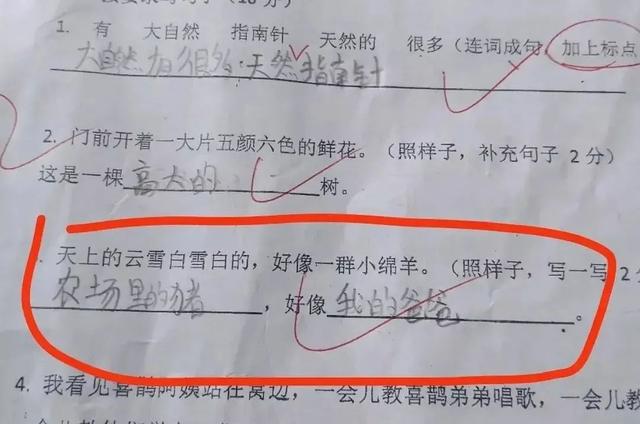 1. 有 大自然 指南针 天然的 很多（连词成句，加上标点
大自然有很多天然指南针
2. 门前开着一大片五颜六色的鲜花。（照样子，补充句子 2 分）
这是一棵高大的树。
天上的云雪白雪白的，好像一群小绵羊。（照样子，写一写 2
农场里的猪，好像我的爸爸。
4. 我看见喜鹊阿姨站在窝边，一会儿教喜鹊弟弟唱歌，一会儿